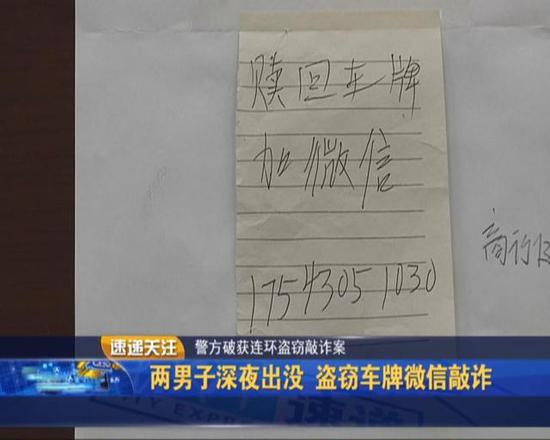 赎回车牌
加微信
17543051030
商行
速递关注
警方破获连环盗窃敲诈案
两男子深夜出没 盗窃车牌微信敲诈